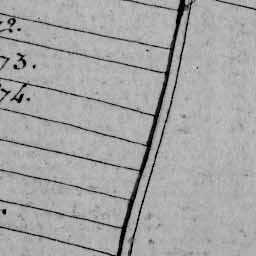 72.
73.
74.